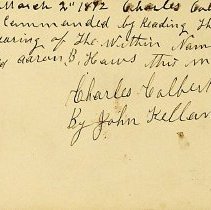 March 2" 1892 Charles Col
Commanded by Reading Th
earing of The Within Nam
d Aaron B. Haws this
Charles Colbert
By John Kellar